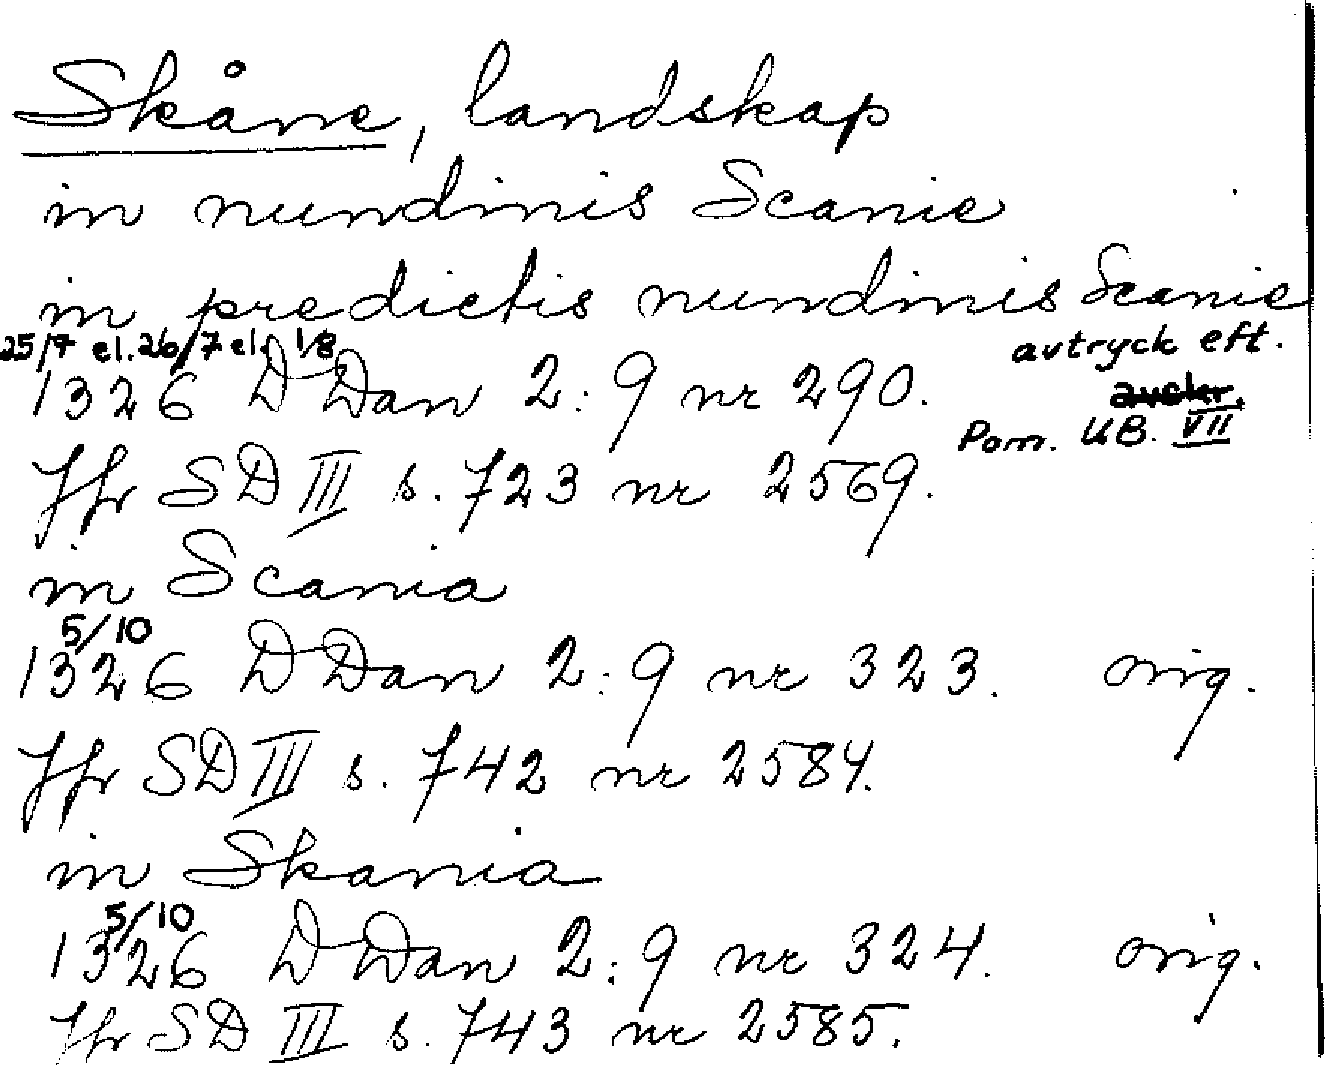 Skåne, landskap
in nundinis Scanie
in predictis nundinis Scanie
25/7 el. 26/7 el. 1/8 avtryck eft.
1326 D Dan 2:9 nr 290.
Pom. UB. VII
Jfr SD III s. 723 nr 2569.
in Scania
5/10
1326 D Dan 2:9 nr 323. orig.
Jfr SD III s. 742 nr 2584.
in Skania
5/10
1326 D Dan 2:9 nr 324. orig.
Jfr SD III s. 743 nr 2585.